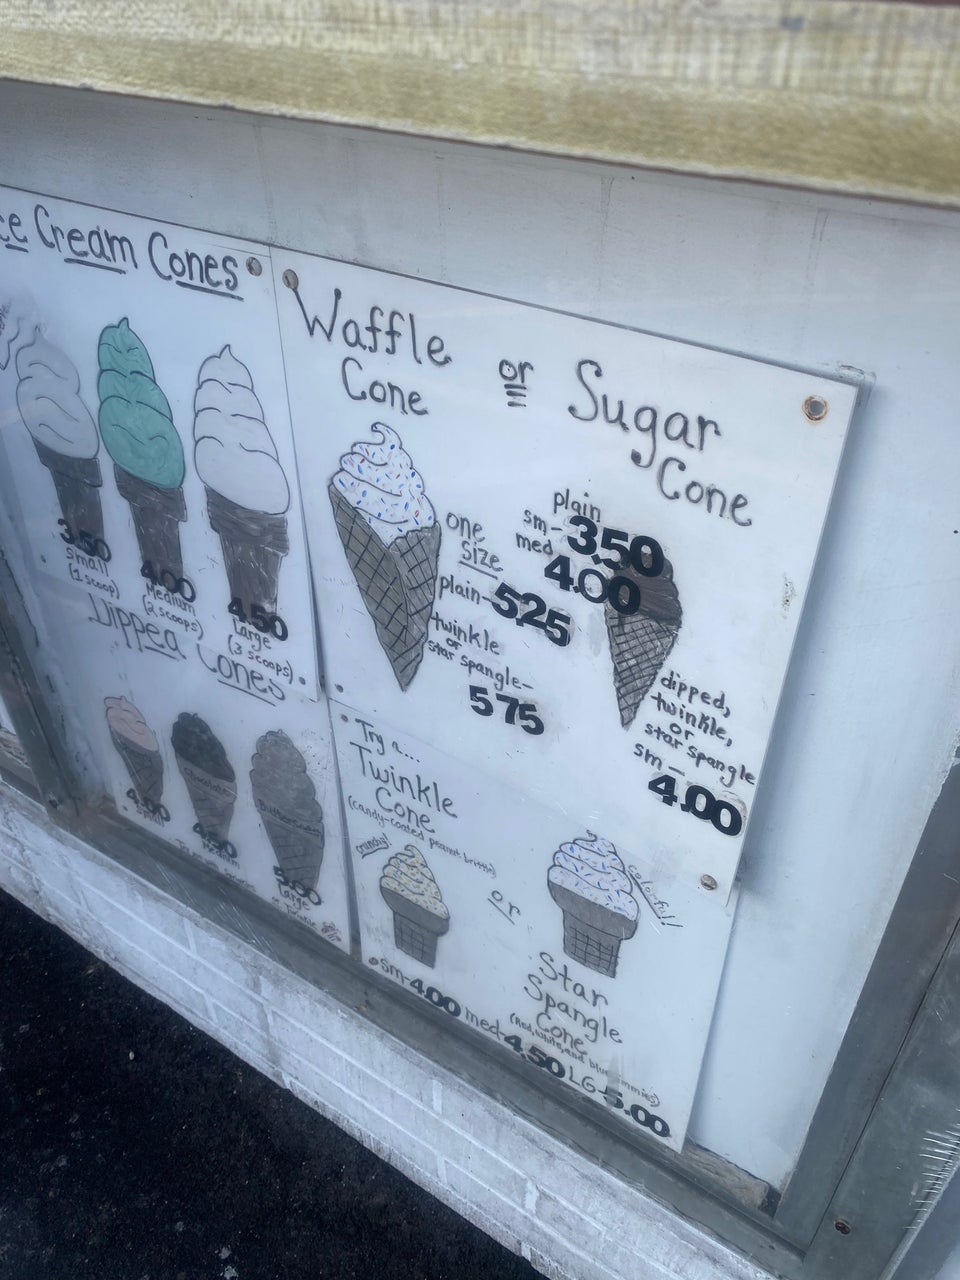 Cream Cones
3.50
Small
(1 scoop)
4.00
Medium
(2 scoops)
4.50
Large
(3 scoops)
Dipped Cones
4.00
Small
Chocolate
4.50
Medium
Butterscotch
5.00
Large
or Twinkle
Waffle
Cone
or
Sugar
Cone
one
size
plain-525
twinkle
or
star spangle-
575
plain
sm-3.50
med 4.00
dipped,
twinkle,
or
star spangle
sm-
4.00
Try a...
Twinkle
Cone
(candy-coated peanut brittle)
crunchy!
or
colorful!
Star
Spangle
Cone
(Red, white, and blue
sm-4.00 med-4.50 LG-5.00